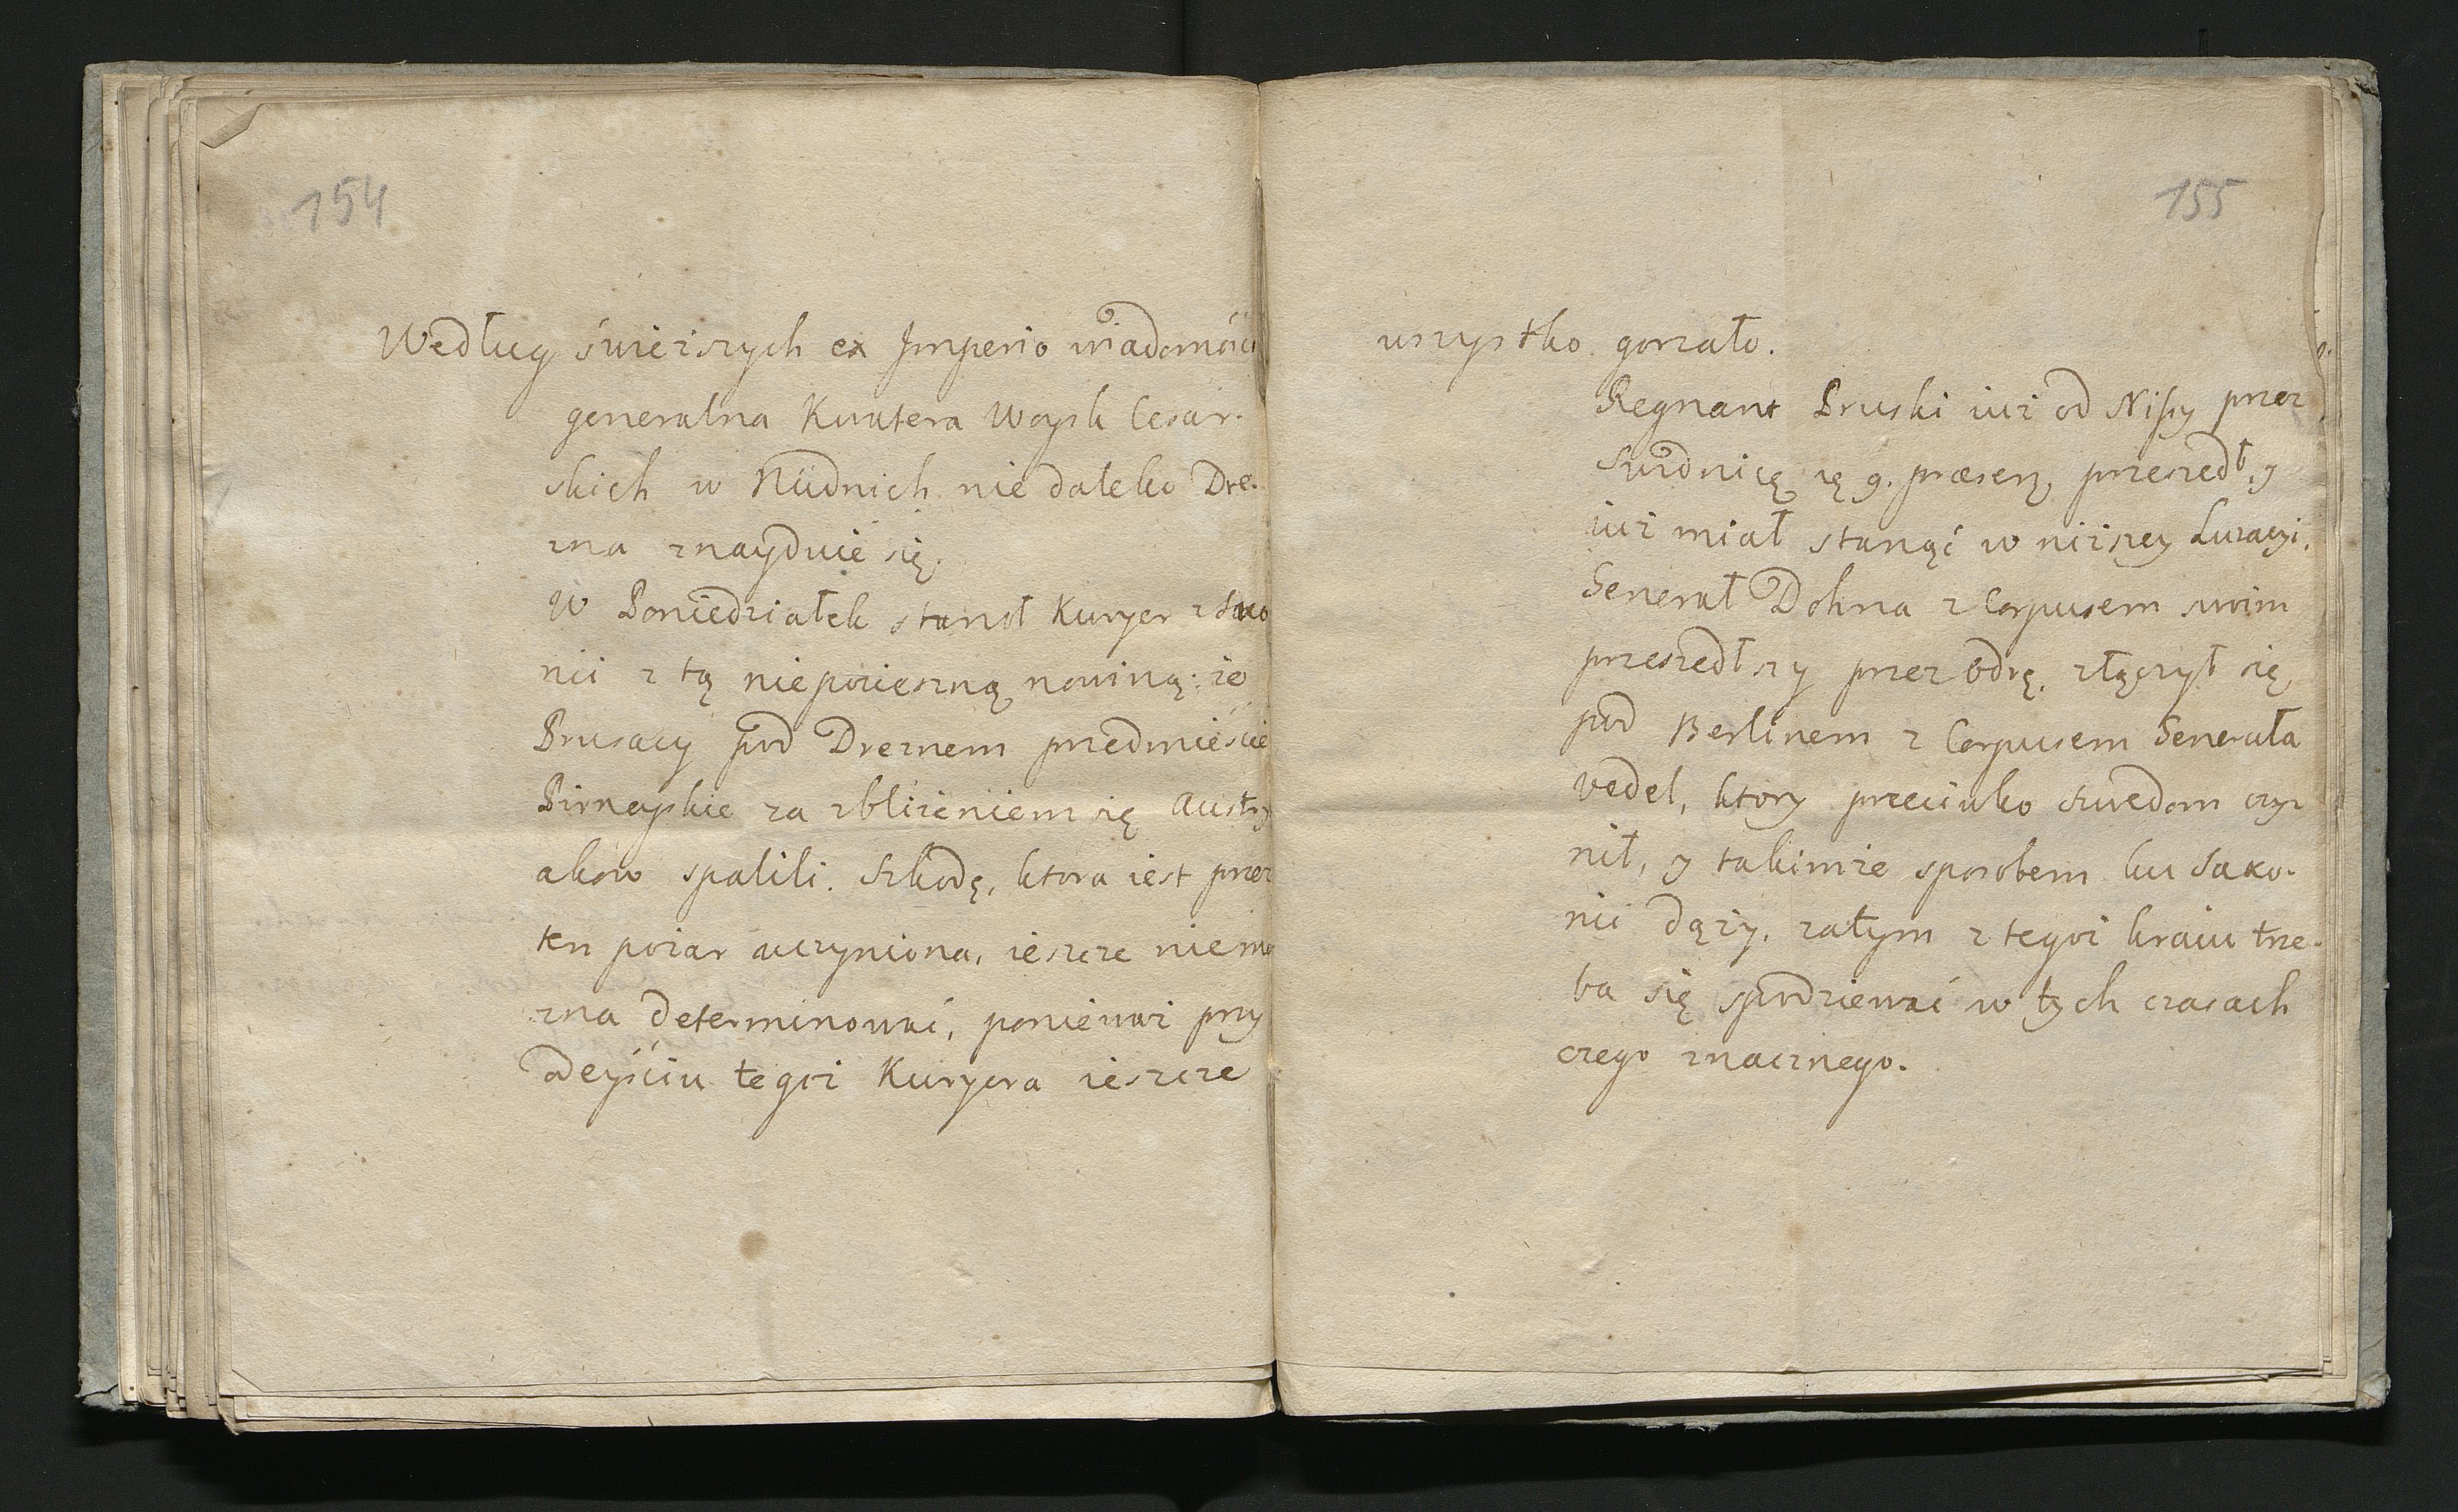 154
Według świeższych ex Imperio wiadomości
generalna Kwatera Woysk Cesar-
skich w Nüdnich nie daleko Dre-
zna znayduie się.
W Poniedziałek stanoł Kuryer z Saxo
nii z tą niepocieszną nowiną: że
Prusacy pod Dreznem przedmieście
Pirneyskie za zbliżeniem się Austry
akow spalili. Szkodę, ktora iest przez
ten pożar uczyniona, ieszcze niemo
żna determinować, ponieważ przy
odeyściu tegoż Kuryera ieszcze
155
wszystko gorzało.
Regnant Pruski iuż od Nissy przez
Swidnicę 9. præsen. przeszedł, y
iuż miał stanąć w niższey Luzacyi.
Generał Dohna z Corpusem swoim
przeszedłszy przez Odrę, złączył się
pod Berlinem z Corpusem Generała
Vedel, ktory przeciwko Szwedom czy-
nił, y takimże sposobem ku Saxo-
nii dąży, zatym z tegoż kraiu trze-
ba się spodziewać w tych czasach
czego znacznego.